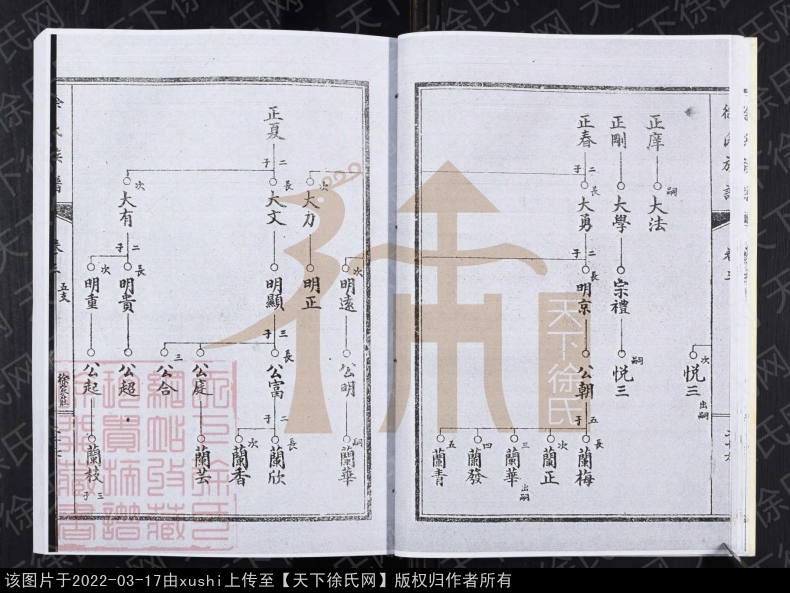 正庠
嗣
大法
次
悦三
出嗣
正剛
大學
宗禮
嗣
悦三
正春
二子
長
大勇
二子
長
明京
公朝
五子
長
蘭梅
次
蘭正
三
蘭華
出嗣
四
蘭發
五
蘭青
次
大力
明正
次
明遠
公明
嗣
蘭華
正夏
二子
長
大文
明顯
三子
長
公富
二子
長
蘭欣
次
蘭香
公庭
蘭芸
三
公合
次
大有
二子
長
明貴
公超
次
明重
公起
蘭枝
三子
卷三
五支
天下徐氏
该图片于2022-03-17由xushi上传至【天下徐氏网】版权归作者所有